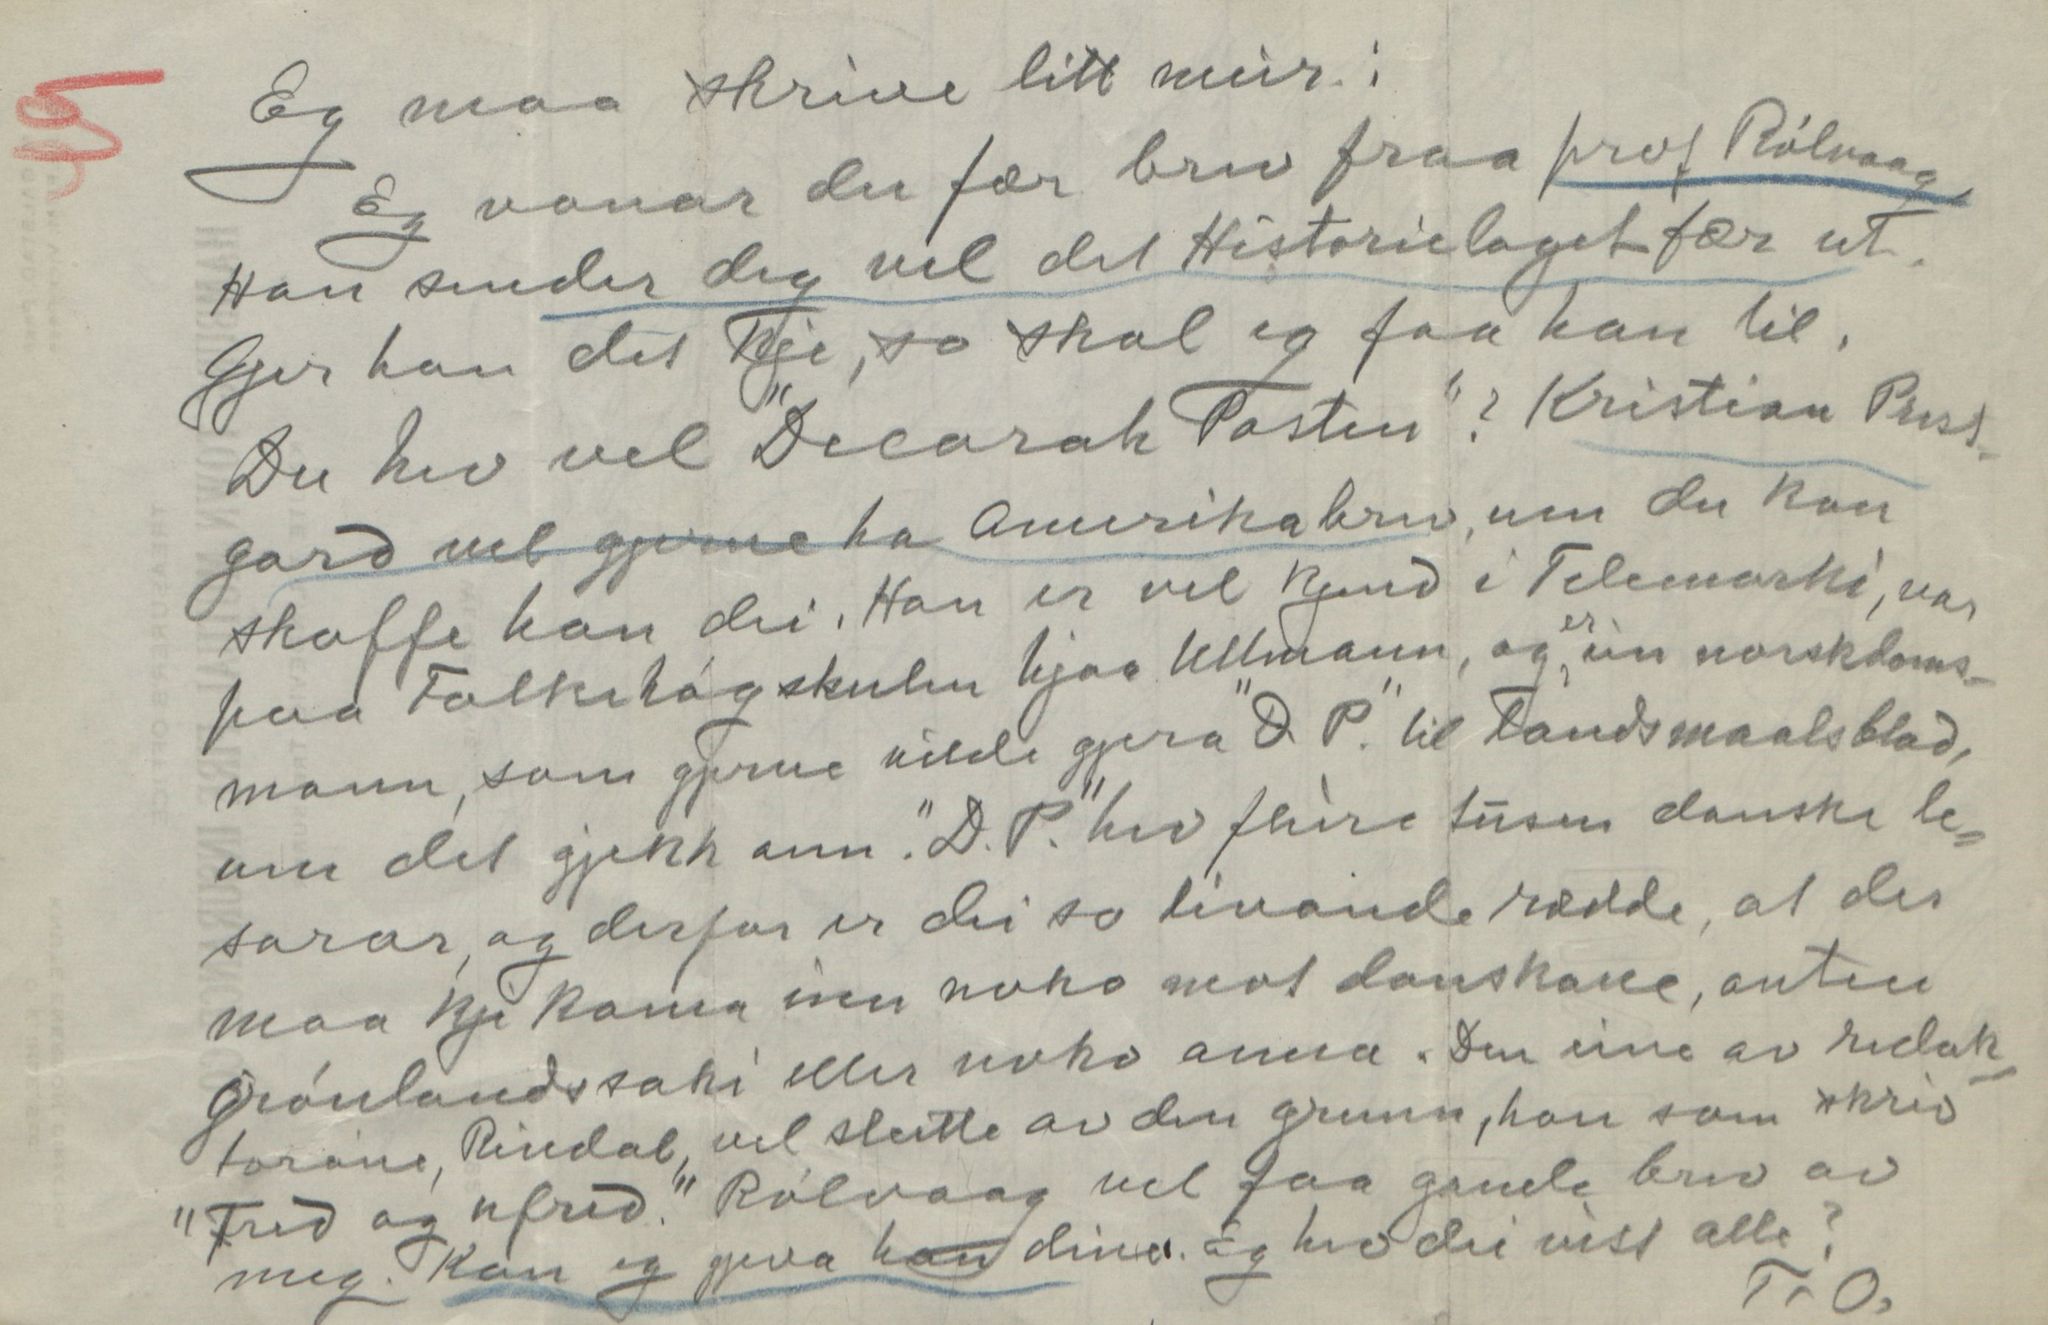 Eg maa skrive litt meir:
Eg vonar du fær brev fraa prof Rólvaag,
Han sender deg vel det Historielaget fær ut.
Gjer han det kje, so skal eg faa han til.
Du hev vel "Decorah Posten"? Kristian Prest-
gard vil gjerne ha Amerikabrev, um du kan
skaffe han dei. Han er vel kjend i Telemarki, var
paa Folkehógskulen hjaa Ullmann, og er ein norskdoms-
mann, som gjerne vilde gjera "D. P." til Landsmaalsblad,
um det gjekk ann. "D. P." hev fleire túsen danske le-
sarar, og derfor er dei so livande rædde, at der
maa kje koma inn noko mot danskane, anten
Grónlandssaki eller noko anna. Den eine av redak-
torane, Rindal, vil slutte av den grunn, han som skriv
"Fred og ufred." Rólvaag vil faa gamle brev av
meg. Kan eg gjeva han dine. Eg hev dei visst alle?
T. O.